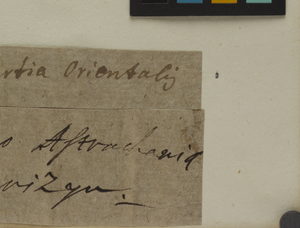 rtia Orientalis
o Astrachania
rizyn.